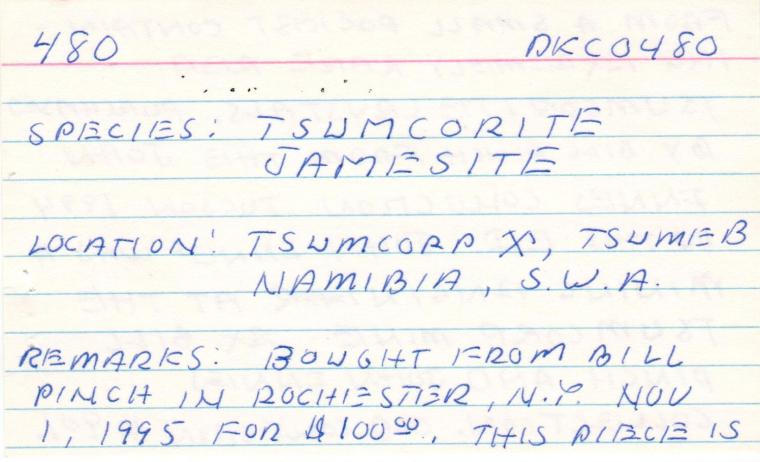 480 DKC0480
SPECIES: TSUMCORITE
JAMESITE
LOCATION: TSUMCORP X, TSUMEB
NAMIBIA, S.W.A.
REMARKS: BOUGHT FROM BILL
PINCH IN ROCHESTER, N.Y. NOV
1, 1995 FOR $100.00. THIS PIECE IS